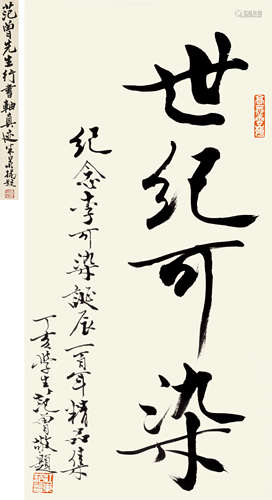 世纪可染
纪念李可染诞辰一百年精品集
丁亥学生范曾敬题
范曾先生行書軸真迹